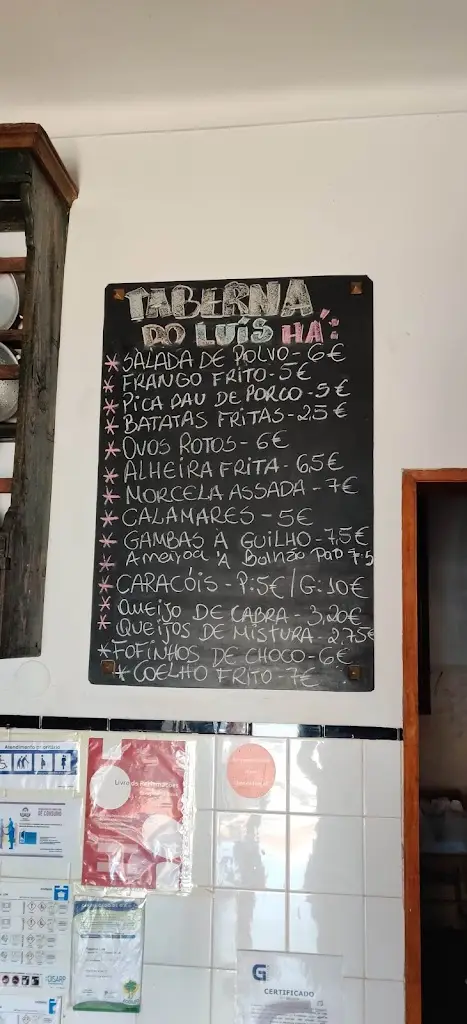 TABERNA
DO LUÍS HÁ:
* SALADA DE POLVO - 6€
* FRANGO FRITO - 5€
* PICA PAU DE PORCO - 5€
* BATATAS FRITAS - 2,5€
* OVOS ROTOS - 6€
* ALHEIRA FRITA - 6,5€
* MORCELA ASSADA - 7€
* CALAMARES - 5€
* GAMBAS A GUILHO - 7,5€
* Ameijoa À Bulhão Pato 7,5
* CARACÓIS - P:5€ / G:10€
* QUEIJO DE CABRA - 3,20€
* QUEIJOS DE MISTURA - 2,75€
* FOFINHOS DE CHOCO - 6€
* COELHO FRITO - 7€
Atendimento prioritário
Livro de Reclamações
CERTIFICADO